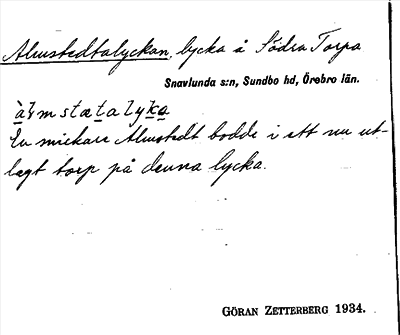 Almstedtalyckan, lycka å Södra Torpa
Snavlunda s:n, Sundbo hd, Örebro län.
àlmstætalyka
En snickare Almstedt bodde i ett nu ut-
lagt torp på denna lycka.
GÖRAN ZETTERBERG 1934.